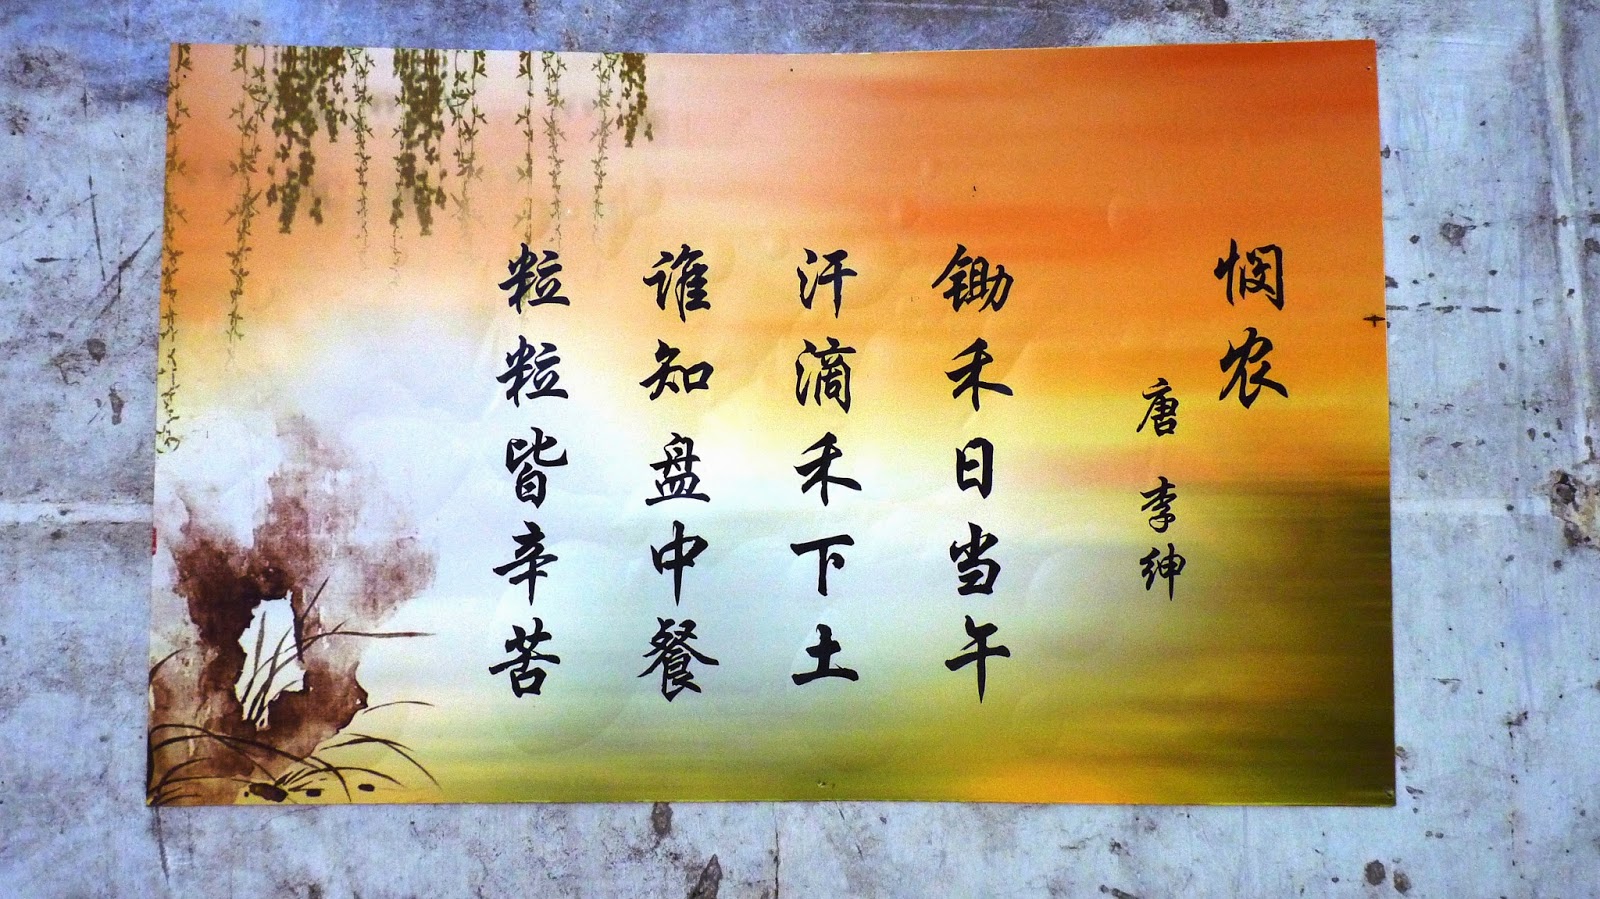 悯农
唐 李绅
锄禾日当午
汗滴禾下土
谁知盘中餐
粒粒皆辛苦